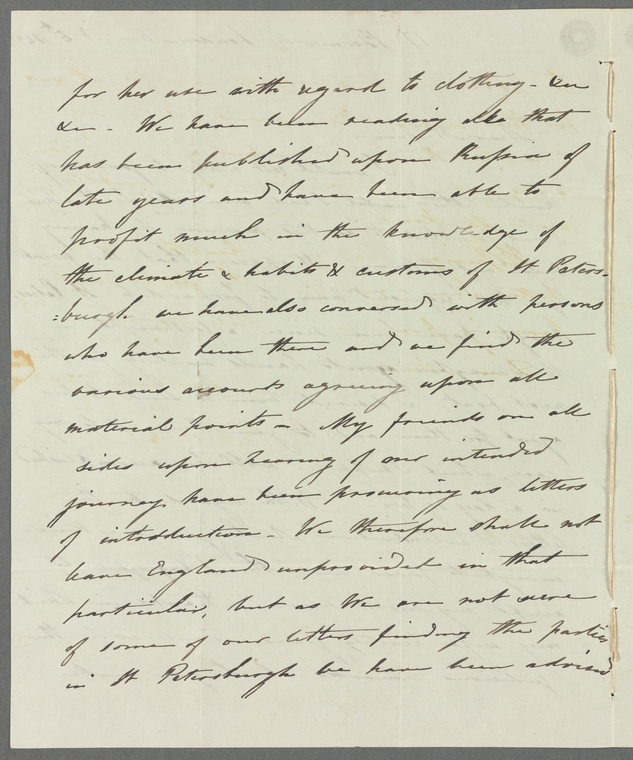 for her use with regard to clothing - &c
&c - We have been reading all that
has been published upon Russia of
late years and have been able to
profit much in the knowledge of
the climate & habits & customs of St Peters-
:burgh we have also conversed with persons
who have been there and we find the
various accounts agreeing upon all
material points - My friends on all
sides upon hearing of our intended
journey have been procuring us letters
of introduction - We therefore shall not
leave England unprovided in that
particular, but as We are not sure
of some of our letters finding the parties
in St Petersburgh we have been advised